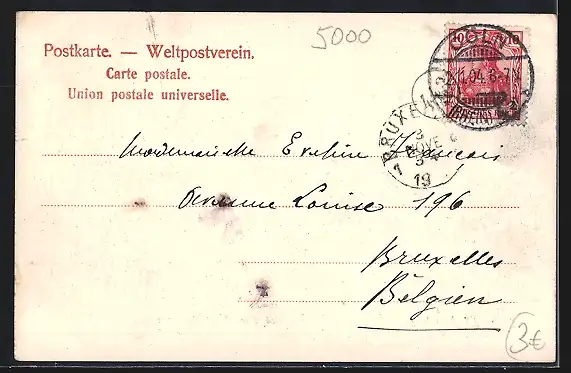 5000
Postkarte. — Weltpostverein.
Carte postale.
Union postale universelle.
CÖLN
11.04.6-7
BRUXEL
3
NOVE
1
19
Mademoiselle Eveline
Avenue Louise 196
Bruxelles
Belgien
3€